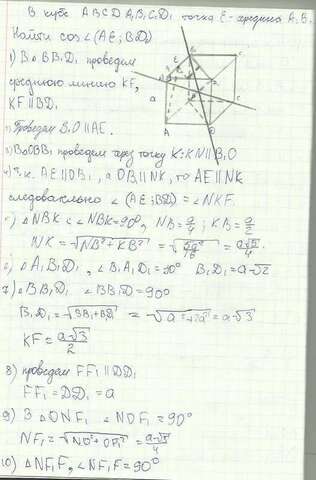 В кубе ABCDA₁B₁C₁D₁ точка E - середина A₁B₁
Найти cos∠(AE; BD₁)
1) В △BB₁D₁ проведем
среднюю линию KF,
KF∥BD₁
2) Проведем B₁O∥AE.
3) В △OBB₁ проведем через точку K: KN∥B₁O
4) Т.к. AE∥OB₁, а OB₁∥NK, то AE∥NK
следовательно ∠(AE; BD₁) = ∠NKF.
5) △NBK ∠NBK=90°, NB=a/4; KB=a/2
NK = √(NB²+KB²) = √(5a²/16) = a√5/4
6) △A₁B₁D₁, ∠B₁A₁D₁=90° B₁D₁=a√2
7) △BB₁D₁ ∠BB₁D=90°
B₁D₁=√(BB₁+BD²) = √(a²+2a²) = a√3
KF = a√3/2
8) проведем FF₁∥DD₁
FF₁=DD₁=a
9) В △ONF₁ ∠NOF₁=90°
NF₁=√(NO²+OF₁²)=a√5/4
10) △NF₁F, ∠NF₁F=90°
E
a
A
D
C
F